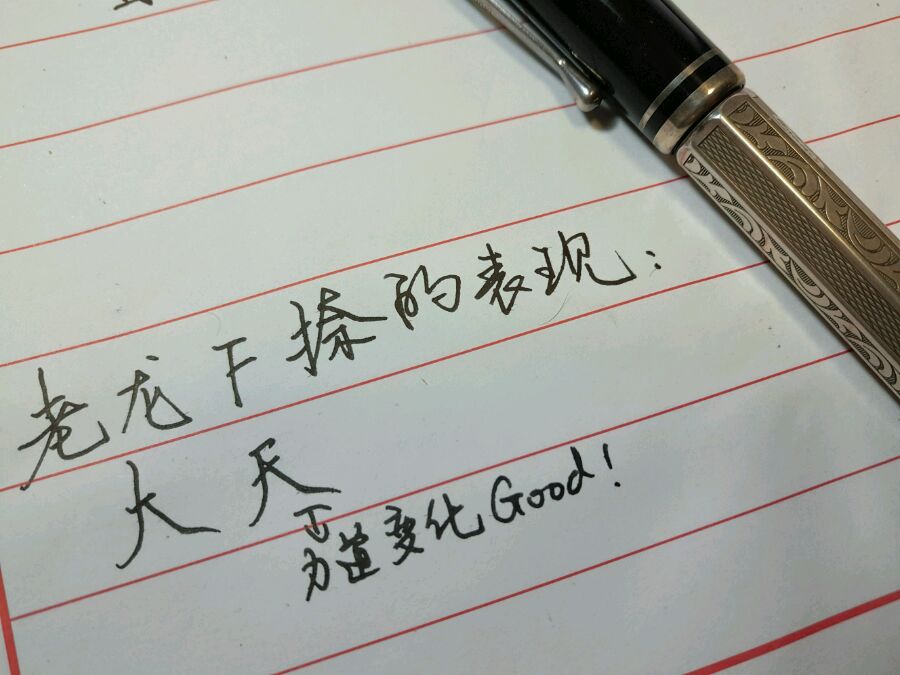 老龙下捺的表现:
大天
力道变化Good!